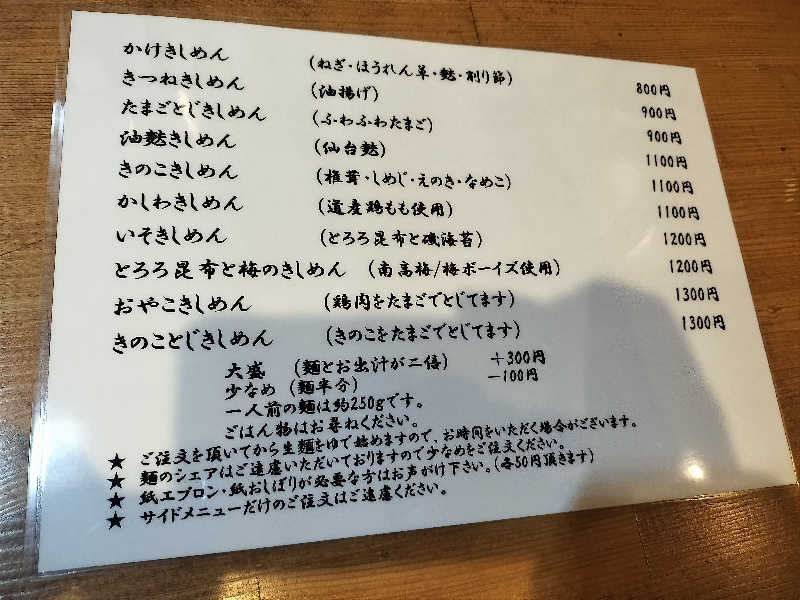 かけきしめん (ねぎ・ほうれん草・麩・削り節) 800円
きつねきしめん (油揚げ) 900円
たまごとじきしめん (ふわふわたまご) 900円
油麩きしめん (仙台麩) 1100円
きのこきしめん (椎茸・しめじ・えのき・なめこ) 1100円
かしわきしめん (道産鶏もも使用) 1100円
いそきしめん (とろろ昆布と磯海苔) 1200円
とろろ昆布と梅のきしめん (南高梅/梅ボーイズ使用) 1200円
おやこきしめん (鶏肉をたまごでとじてます) 1300円
きのことじきしめん (きのこをたまごでとじてます) 1300円
大盛 (麺とお出汁が二倍) +300円
少なめ (麺半分) -100円
一人前の麺は約250gです。
ごはん物はお尋ねください。
★ ご注文を頂いてから生麺をゆで始めますので、お時間をいただく場合がございます。
★ 麺のシェアはご遠慮いただいておりますので少なめをご注文ください。
★ 紙エプロン・紙おしぼりが必要な方はお声がけ下さい。(各50円頂きます)
★ サイドメニューだけのご注文はご遠慮ください。